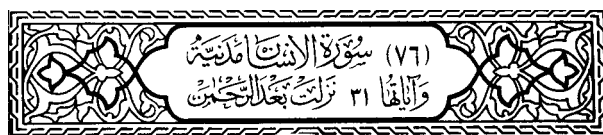 (٧٦) سُورَةُ الإِنسَانِ مَدَنِيَّةٌ
وَآيَاتُهَا ٣١ نَزَلَتْ بَعْدَ الرَّحْمٰنِ